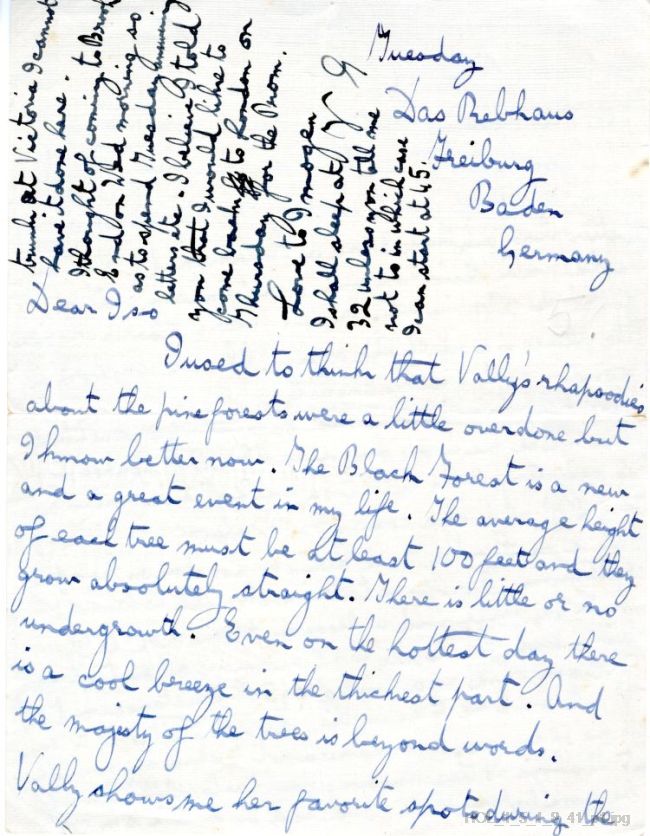 Tuesday
Das Rebhaus
Freiburg
Baden
Germany
Dear Iso
I used to think that Vally's rhapsodies
about the pine forests were a little overdone but
I know better now. The Black Forest is a new
and a great event in my life. The average height
of each tree must be at least 100 feet and they
grow absolutely straight. There is little or no
undergrowth. Even on the hottest day there
is a cool breeze in the thickest part. And
the majesty of the trees is beyond words.
Vally shows me her favorite spots during the
trunk at Victoria I cannot
have it done here.
I thought of coming to Brook
End on Wed morning so
as to spend Tuesday
letters etc. I believe I told
you that I would like to
come back to London on
Thursday for the Prom.
Love to Imogen
I shall sleep at
32 unless you tell me
not to in which case
I can start at 45.